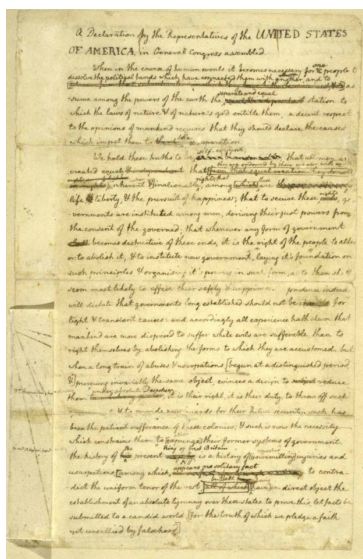 A Declaration by the Representatives of the UNITED STATES
OF AMERICA, in General Congress assembled.
When in the course of human events it becomes necessary for one people to
dissolve the political bands which have connected them with another, and to
assume among the powers of the earth the separate and equal station to
which the laws of nature & of nature's god entitle them, a decent respect
to the opinions of mankind requires that they should declare the causes
which impel them to the separation.
We hold these truths to be self-evident, that all men are
created equal
life liberty, & the pursuit of happiness; that to secure these rights, go-
vernments are instituted among men, deriving their just powers from
the consent of the governed; that whenever any form of government
becomes destructive of these ends, it is the right of the people to alter
or to abolish it, & to institute new government, laying it's foundation on
such principles & organising it's powers in such form, as to them shall
seem most likely to effect their safety & happiness. prudence indeed
will dictate that governments long established should not be changed for
light & transient causes: and accordingly all experience hath shewn that
mankind are more disposed to suffer while evils are sufferable, than to
right themselves by abolishing the forms to which they are accustomed. but
when a long train of abuses & usurpations [begun at a distinguished period
& pursuing invariably the same object, evinces a design to reduce
them it is their right, it is their duty, to throw off such
& to provide new guards for their future security. such has
been the patient sufferance of these colonies; & such is now the necessity
which constrains them to [expunge] their former systems of government.
the history of the present king of Great Britain is a history of unremitting injuries and
usurpations, [among which appears no solitary fact to contra-
dict the uniform tenor of the rest have in direct object the
establishment of an absolute tyranny over these states. to prove this let facts be
submitted to a candid world [for the truth of which we pledge a faith
yet unsullied by falsehood]